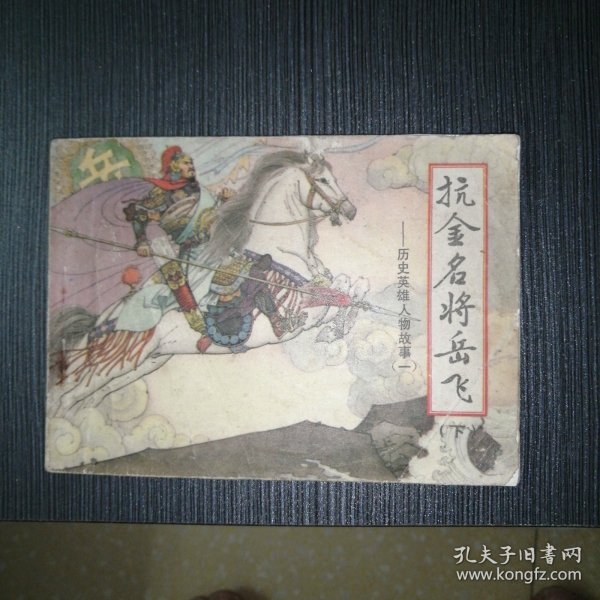 抗金名将岳飞
(下)
——历史英雄人物故事(一)
岳
孔夫子旧书网
www.kongfz.com